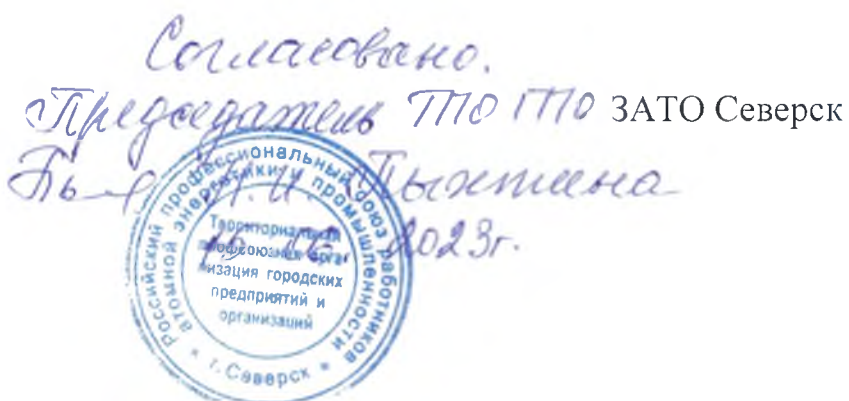 Согласовано.
Председатель ТПО ГПО ЗАТО Северск
Н.И. Пыхтина
2023г.
Российский профессиональный союз работников
атомной энергетики и промышленности
Территориальная
профсоюзная орга-
низация городских
предприятий и
организаций
* г. Северск *